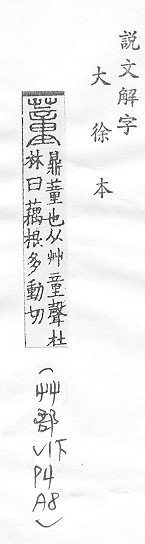 説文解字
大徐本
董 鼎董也从艸童聲杜
林曰藕根多動切
(艸部
V1下
P4
A8)